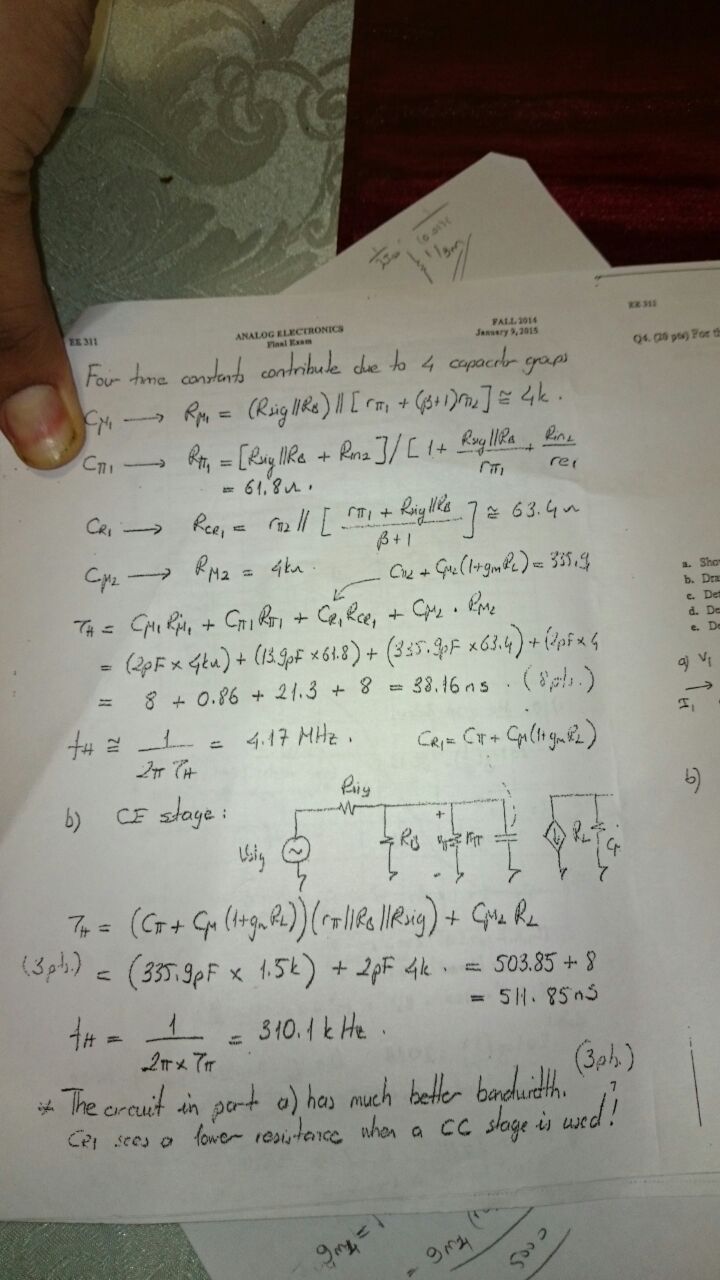 EE 311
ANALOG ELECTRONICS
Final Exam
FALL 2014
January 9, 2015
Four time constants contribute due to 4 capacitor groups
Cμ1 → Rμ1 = (Rsig//RB) // [rπ1 + (β+1)rπ2] ≅ 4k.
Cπ1 → Rπ1 = [Rsig//RB + Rin2] / [1 + Rsig//RB / rπ1 + Rin2 / re1
= 61.8Ω.
CR1 → RCR1 = rπ2 // [ rπ1 + Rsig//RB / β+1 ] ≅ 63.4Ω
Cμ2 → Rμ2 = 4kΩ.
Cπ2 + Cμ2(1+gmRL) = 335.9
τH = Cμ1Rμ1 + Cπ1Rπ1 + CR1RCR1 + Cμ2 . Rμ2
= (2pF x 4kΩ) + (13.9pF x 61.8) + (335.9pF x 63.4) + (2pF x 4
= 8 + 0.86 + 21.3 + 8 = 38.16 ns . (8pts.)
fH ≅ 1 / 2π τH = 4.17 MHz . CR1 = Cπ + Cμ(1+gmRL)
b) CE stage :
Rsig
Vsig
RB
+
rπ
-
RL
τH = (Cπ + Cμ(1+gmRL))(rπ//RB//Rsig) + Cμ2 RL
(3pts.) = (335.9pF x 1.5k) + 2pF 4k . = 503.85 + 8
= 511.85nS
fH = 1 / 2π x τπ = 310.1 k Hz .
(3pts.)
* The circuit in part a) has much better bandwidth.
CR1 sees a lower resistance when a CC stage is used!
EE 311
Q4. (20 pts) For
a. Sho
b. Dra
c. Det
d. De
e. De
a) V1
I1
b)